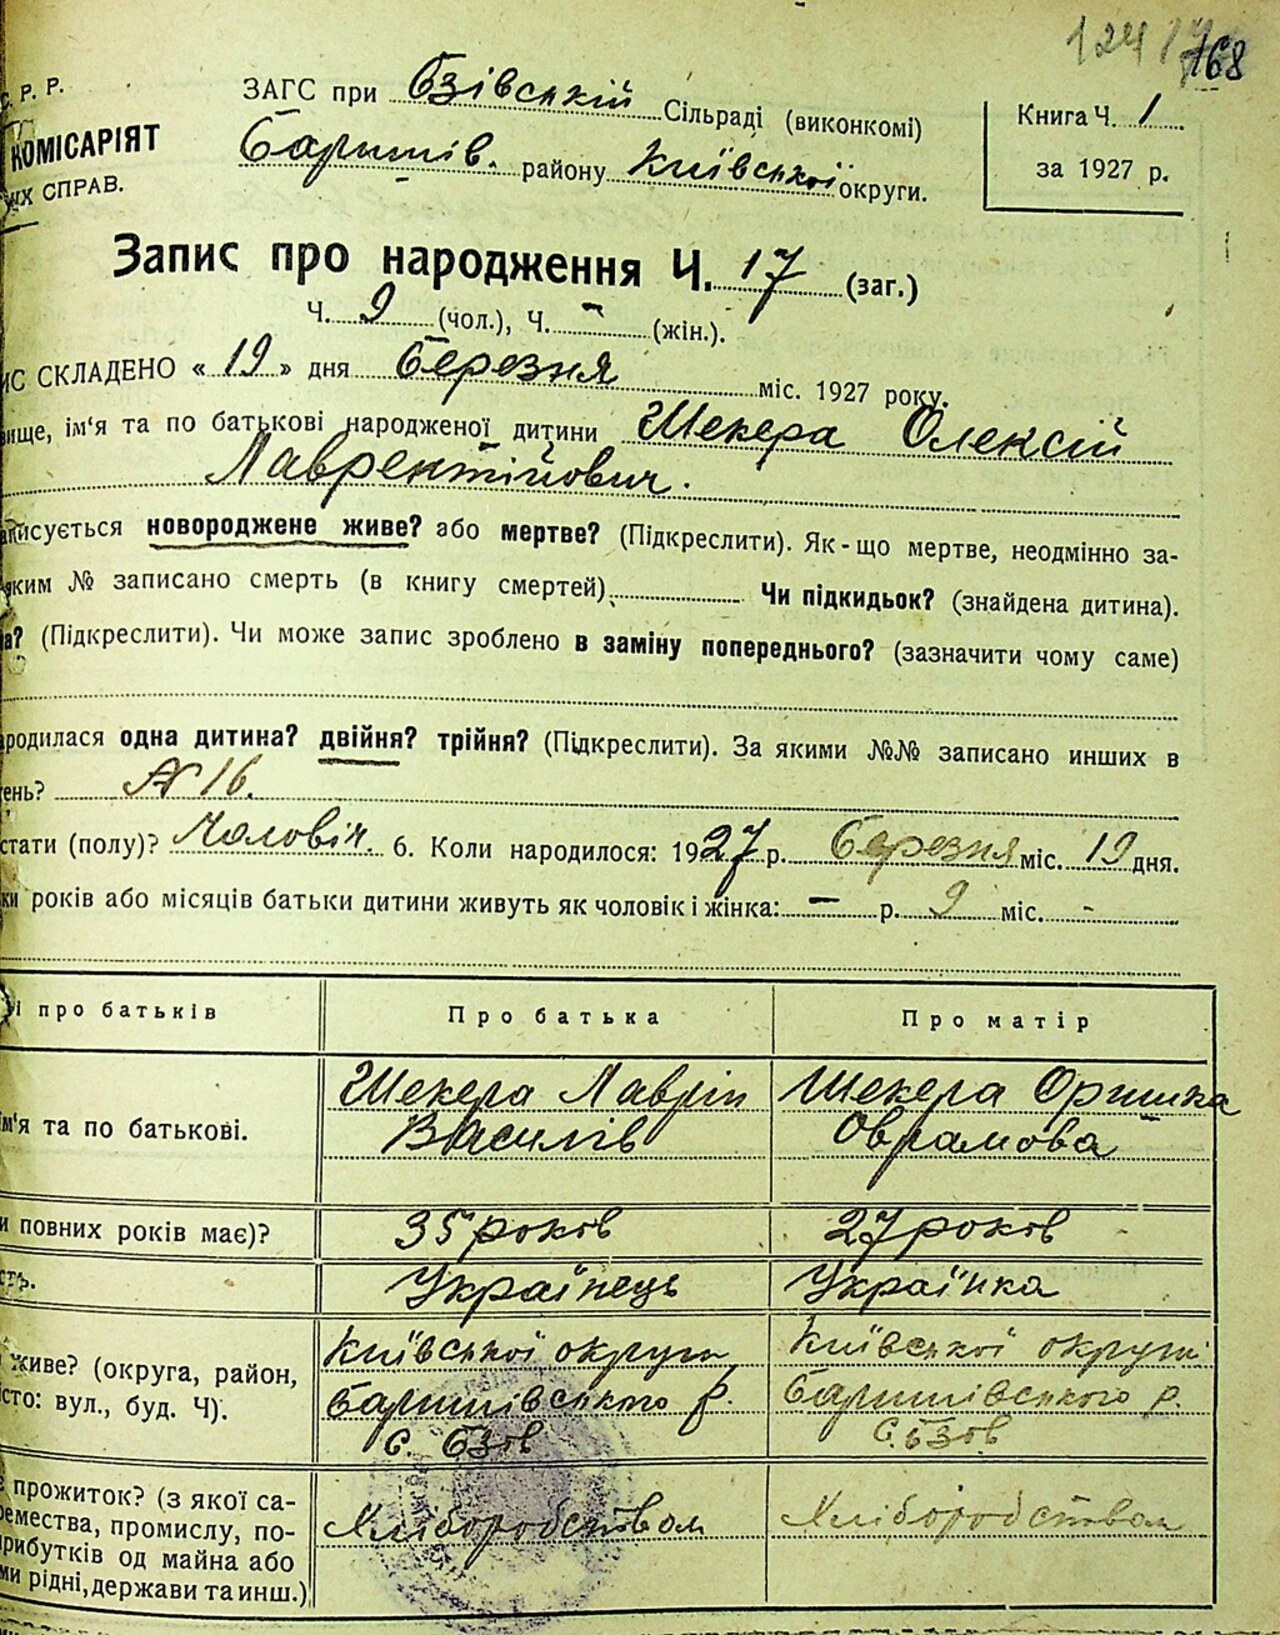 124 168
С. Р. Р.
ЗАГС при Бзівській Сільраді (виконкомі)
Книга Ч. 1
КОМІСАРІЯТ
Баришів. району Київської округи.
за 1927 р.
ИХ СПРАВ.
Запис про народження Ч. 17 (заг.)
Ч. 9 (чол.), Ч. - (жін.).
ИС СКЛАДЕНО « 19 » дня Березня міс. 1927 року.
вище, ім'я та по батькові народженої дитини Шекера Олексій
Лаврентійович.
писується новороджене живе? або мертве? (Підкреслити). Як-що мертве, неодмінно за-
яким № записано смерть (в книгу смертей) Чи підкидьок? (знайдена дитина).
а? (Підкреслити). Чи може запис зроблено в заміну попереднього? (зазначити чому саме)
ародилася одна дитина? двійня? трійня? (Підкреслити). За якими №№ записано инших в
ень? № 16.
стати (полу)? Чоловіч. 6. Коли народилося: 1927 р. Березня міс. 19 дня.
ки років або місяців батьки дитини живуть як чоловік і жінка: — р. 9 міс. -
і про батьків Про батька Про матір
м'я та по батькові. Шекера Лаврін Шекера Оришка
Василів Оврамова
и повних років має)? 35 років 27 років
сть. Українець Українка
живе? (округа, район, Київської округи Київської округи
сто: вул., буд. Ч). Баришівського р. Баришівського р.
с. Бзов с. Бзов
прожиток? (з якої са-
ремества, промислу, по- Хліборобством Хліборобством
прибутків од майна або
ми рідні, держави та инш.)